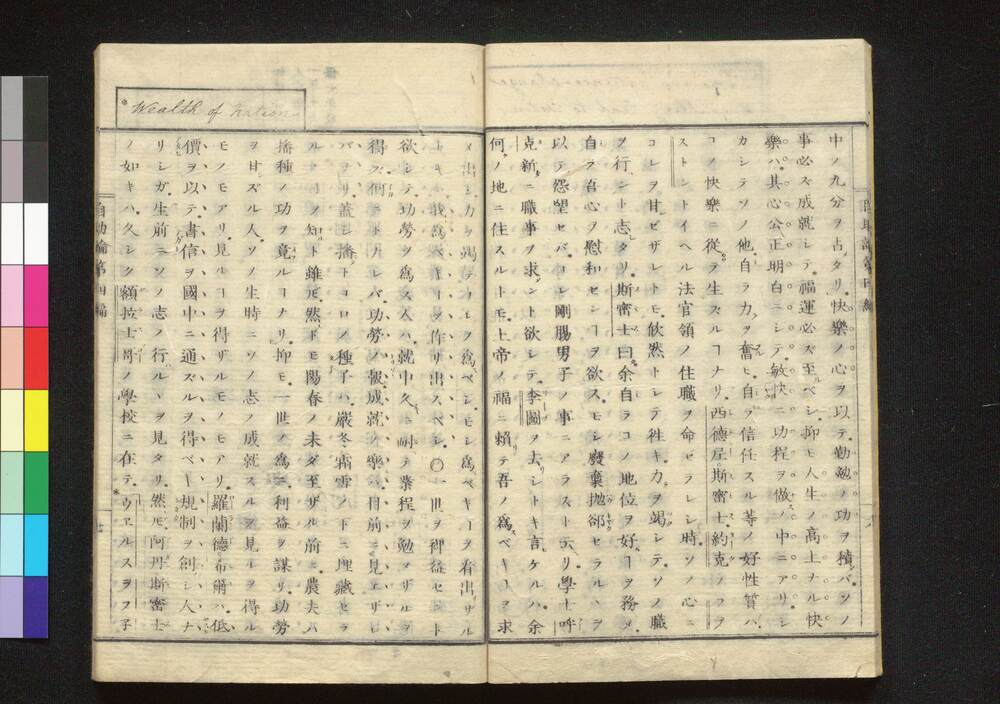 中ノ九分ヲ占タリ快樂ノ心ヲ以テ勤勉ノ功ヲ積バソノ
事必ズ成就シテ福運必ズ至ベシ抑モ人生ノ高上ナル快
樂ハ其心公正明白ニシテ敏快ニ功程ヲ做スノ中ニアリシ
カシテソノ他自ラ力ヲ奮ヒ自ラ信任スル等ノ好性質ハ
コノ快樂ニ從テ生ズルコナリ西德尼斯密士約克ノフヲ
ストンートイヘル法官領ノ住職ヲ命ゼラレシ時ソノ心ニ
コレヲ甘ゼザレトモ欣然トシテ徃キ力ヲ竭シテソノ職
ヲ行ント志タリ斯密士曰余自ラコノ地位ヲ好コヲ務メ
自ラ吾心ヲ慰和センコヲ欲スモシ廢棄抛郤セラルハヲ
以テ怨望セバコレ剛膓男子ノ事ニアラストテリ學士呼
克新ニ職事ヲ求ント欲シテ李圖ヲ去ントキ言ケルハ余
何ノ地ニ住スルトモ上帝ノ福ニ賴テ吾ノ爲ベキーヲ求
Wealth of nation
メ出シ力ヲ竭シ
爲ベシモシ爲ベキーヲ看出サル
トキハ我爲ベキーヲ作リ出スベシ〇一世ヲ裨益セント
欲シテ功勞ヲ爲ス人ハ就中久シク耐テ業程ヲ勉メザルヲ
得ズ何トナレバ功勞ノ報成就ノ樂ハ目前ニ見エザレ
バナリ蓋シ播トコロノ種子ハ嚴冬霜雪ノ下ニ埋藏セラ
ルト
知ト雖モ然ドモ陽春ノ未ダ至ザル前ニ農夫ハ
播種ノ功ヲ竟ルコナリ抑モ一世ノ爲ニ利益ヲ謀リ功勞
ヲ甘ズル人ソノ生時ニソノ志ノ成就スルヲ見ルヲ得ル
モノモアリ見ルコヲ得ザルモノモアリ羅蘭德希爾ハ低
價ヲ以テ書信ヲ國中ニ通ズルヲ得ベキ規制ヲ創シ人ナ
リシガ生前ニソノ志ノ行ルヽヲ見タリ然モ阿丹斯密士
ノ如キハ久シク額拉士哥ノ學校ニ在テウエルスヲフ子
自助論第四編